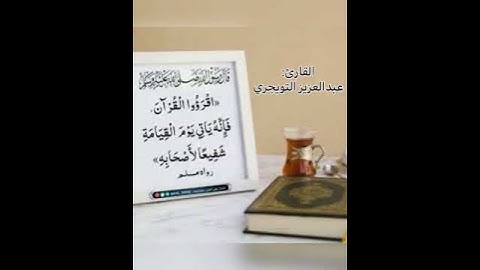 القارئ:
عبدالعزيز التويجري
قال رسول الله صلى الله عليه وسلم
«اقْرَؤُوا الْقُرْآنَ،
فَإِنَّهُ يَأْتِي يَوْمَ الْقِيَامَةِ
شَفِيعًا لأَصْحَابِهِ»
رواه مسلم